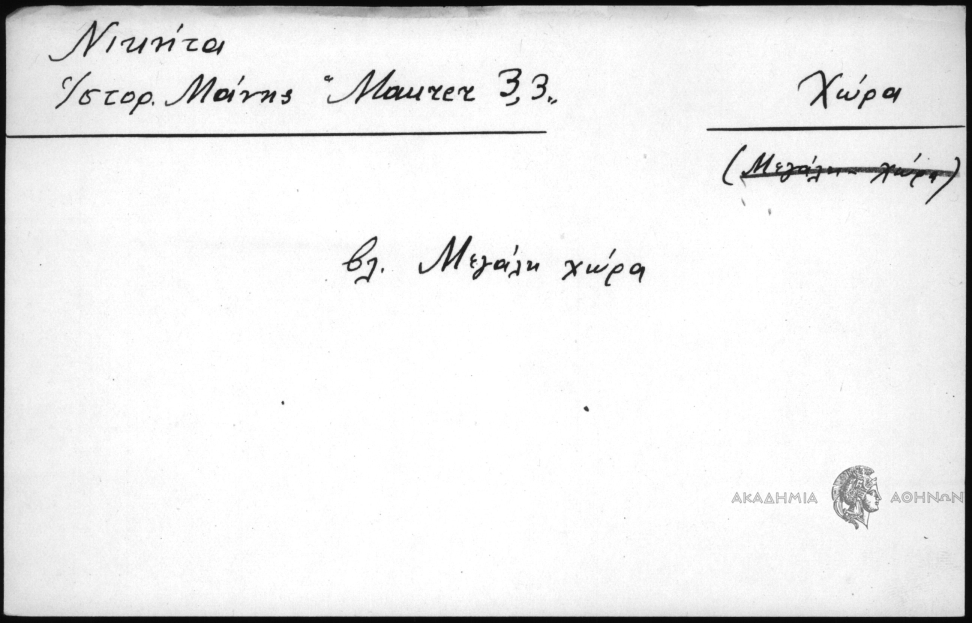 Νικήτα
Ἱστορ. Μάνης "Maurer 3,3„
Χώρα
(Μεγάλη χώρα)
βλ. Μεγάλη χώρα
ΑΚΑΔΗΜΙΑ ΑΘΗΝΩΝ